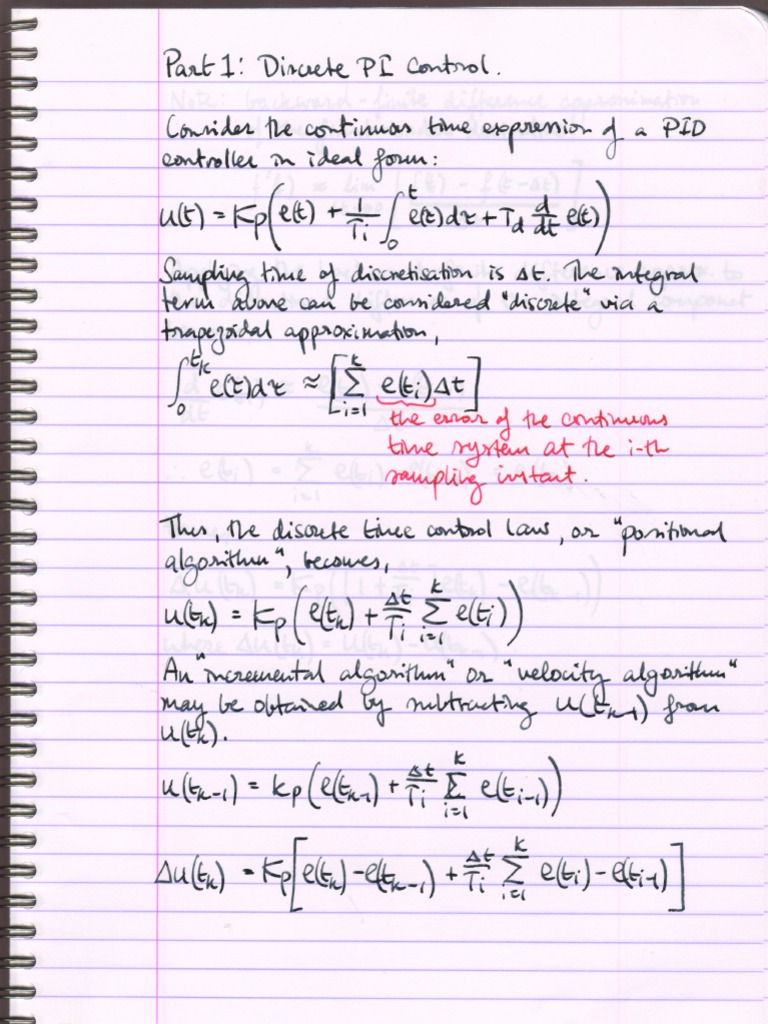 Part 1: Discrete PI Control.
Consider the continuous time expression of a PID
controller in ideal form:
u(t) = Kp(e(t) + 1/Ti ∫₀ᵗ e(τ)dτ + Td d/dt e(t))
Sampling time of discretisation is Δt. The integral
term above can be considered "discrete" via a
trapezoidal approximation,
∫₀^{tk} e(τ)dτ ≈ [∑_{i=1}^{k} e(ti)Δt]
the error of the continuous
time system at the i-th
sampling instant.
Thus, the discrete time control law, or "positional
algorithm", becomes,
u(tk) = Kp(e(tk) + Δt/Ti ∑_{i=1}^{k} e(ti))
An "incremental algorithm" or "velocity algorithm"
may be obtained by subtracting u(tk-1) from
u(tk).
u(tk-1) = Kp(e(tk-1) + Δt/Ti ∑_{i=1}^{k} e(ti-1))
Δu(tk) = Kp[e(tk) - e(tk-1) + Δt/Ti ∑_{i=1}^{k} e(ti) - e(ti-1)]